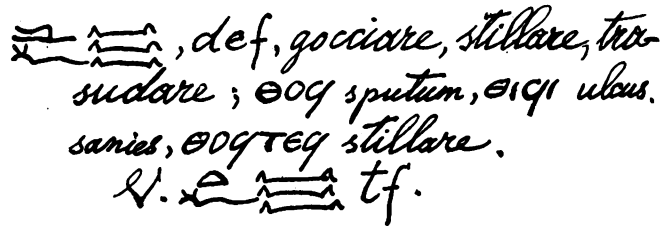 𓂧𓆑𓈗, def, gocciare, stillare, tra-
sudare; ⲑⲟϥ sputum, ⲑⲓϥⲓ ulcus.
sanies, ⲑⲟϥⲧⲉϥ stillare.
V. 𓏏𓆑𓈗 tf.